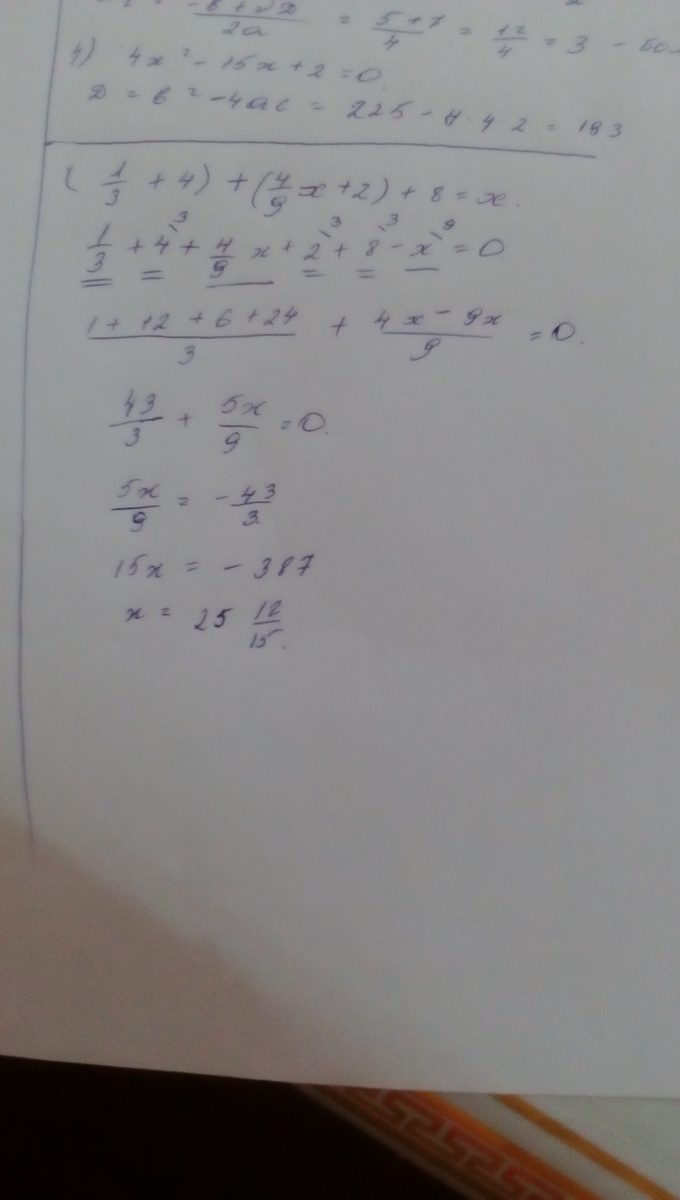 -в + √D / 2a = 5+7/4 = 12/4 = 3 -
4) 4x² - 15x + 2 = 0
D = в² - 4ac = 225 - 4·4·2 = 193
(1/3 + 4) + (4/9 x + 2) + 8 = x.
1/3 + 4\3 + 4/9 x + 2\3 + 8\3 - x\9 = 0
1 + 12 + 6 + 24 / 3 + 4x - 9x / 9 = 0.
43/3 + 5x/9 = 0.
5x/9 = - 43/3
15x = - 387
x = 25 12/15.